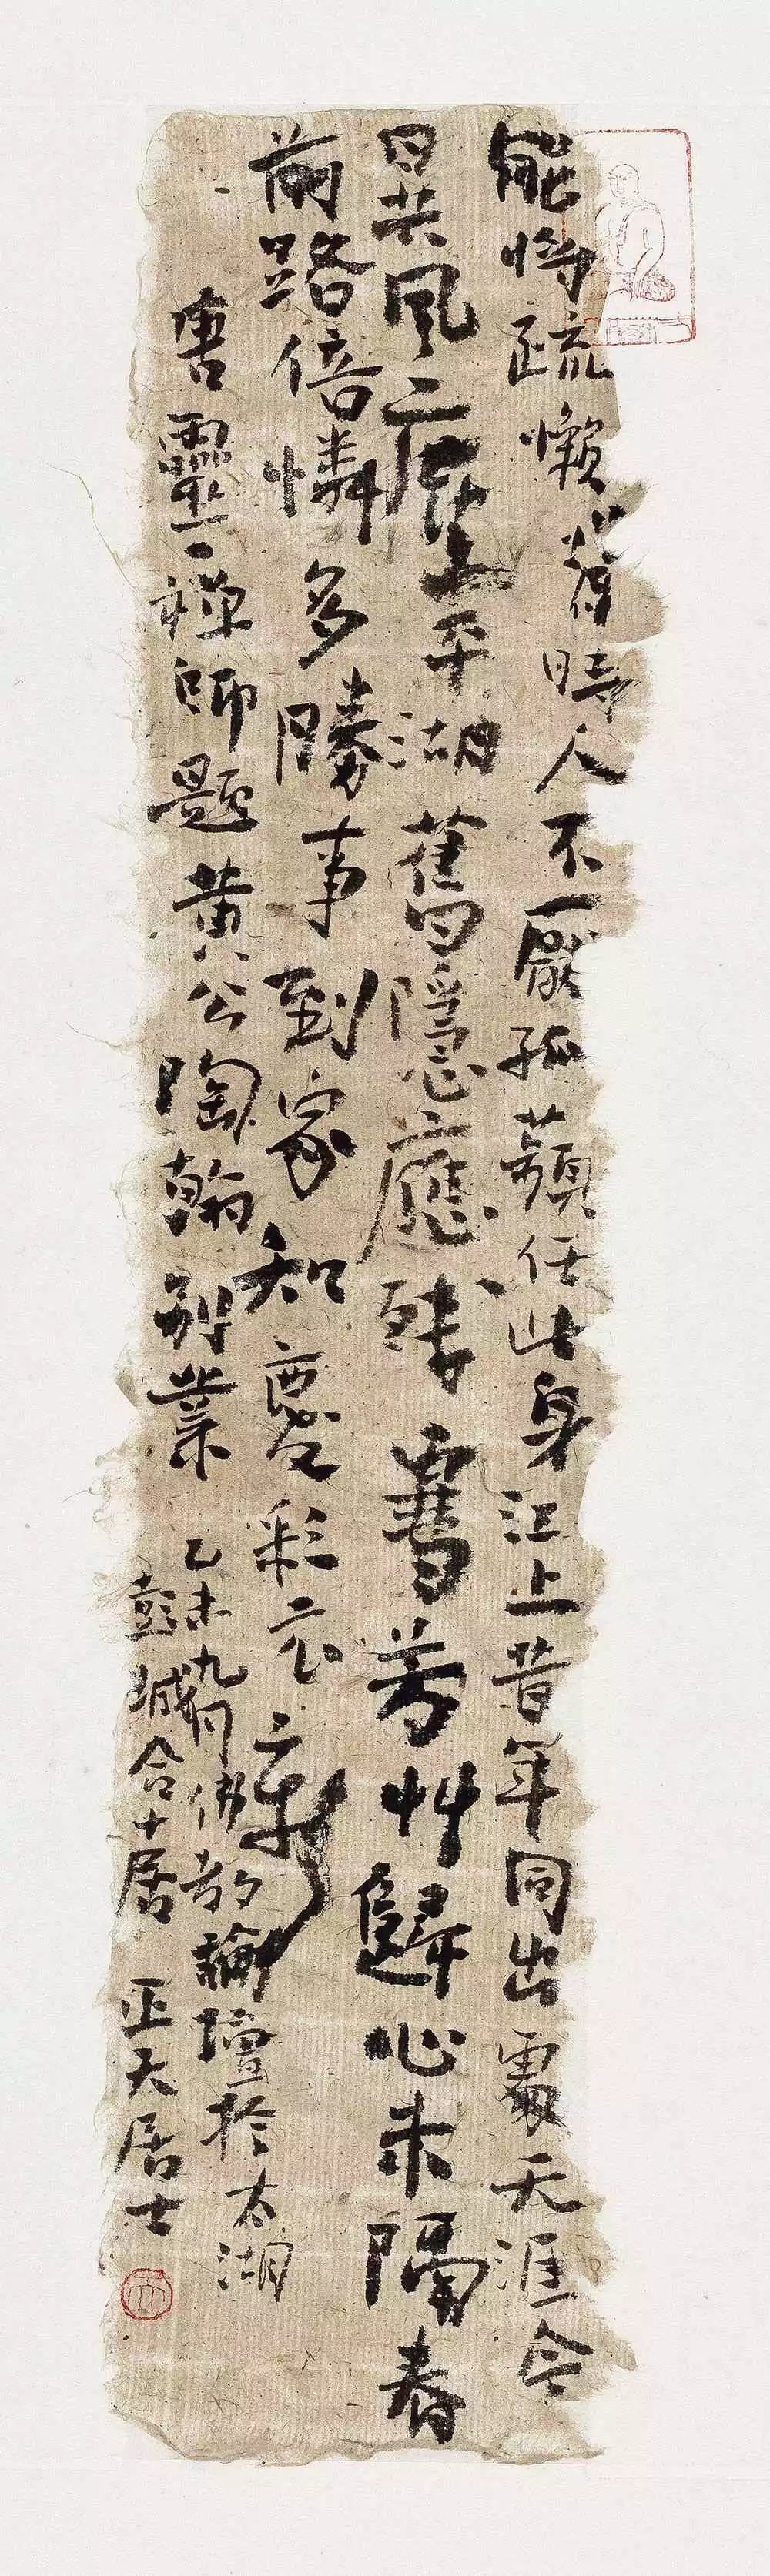 能將疏懶背時人不厭孤蘋任此身江上昔年同出處天涯今
日共風塵平湖舊隱應殘雪芳艸歸心未隔春
前路倍憐多勝事到家知慶彩衣新
唐靈一禪師題黃公陶翰別業
乙未九月佛教論壇於太湖
彭城合十居 正天居士